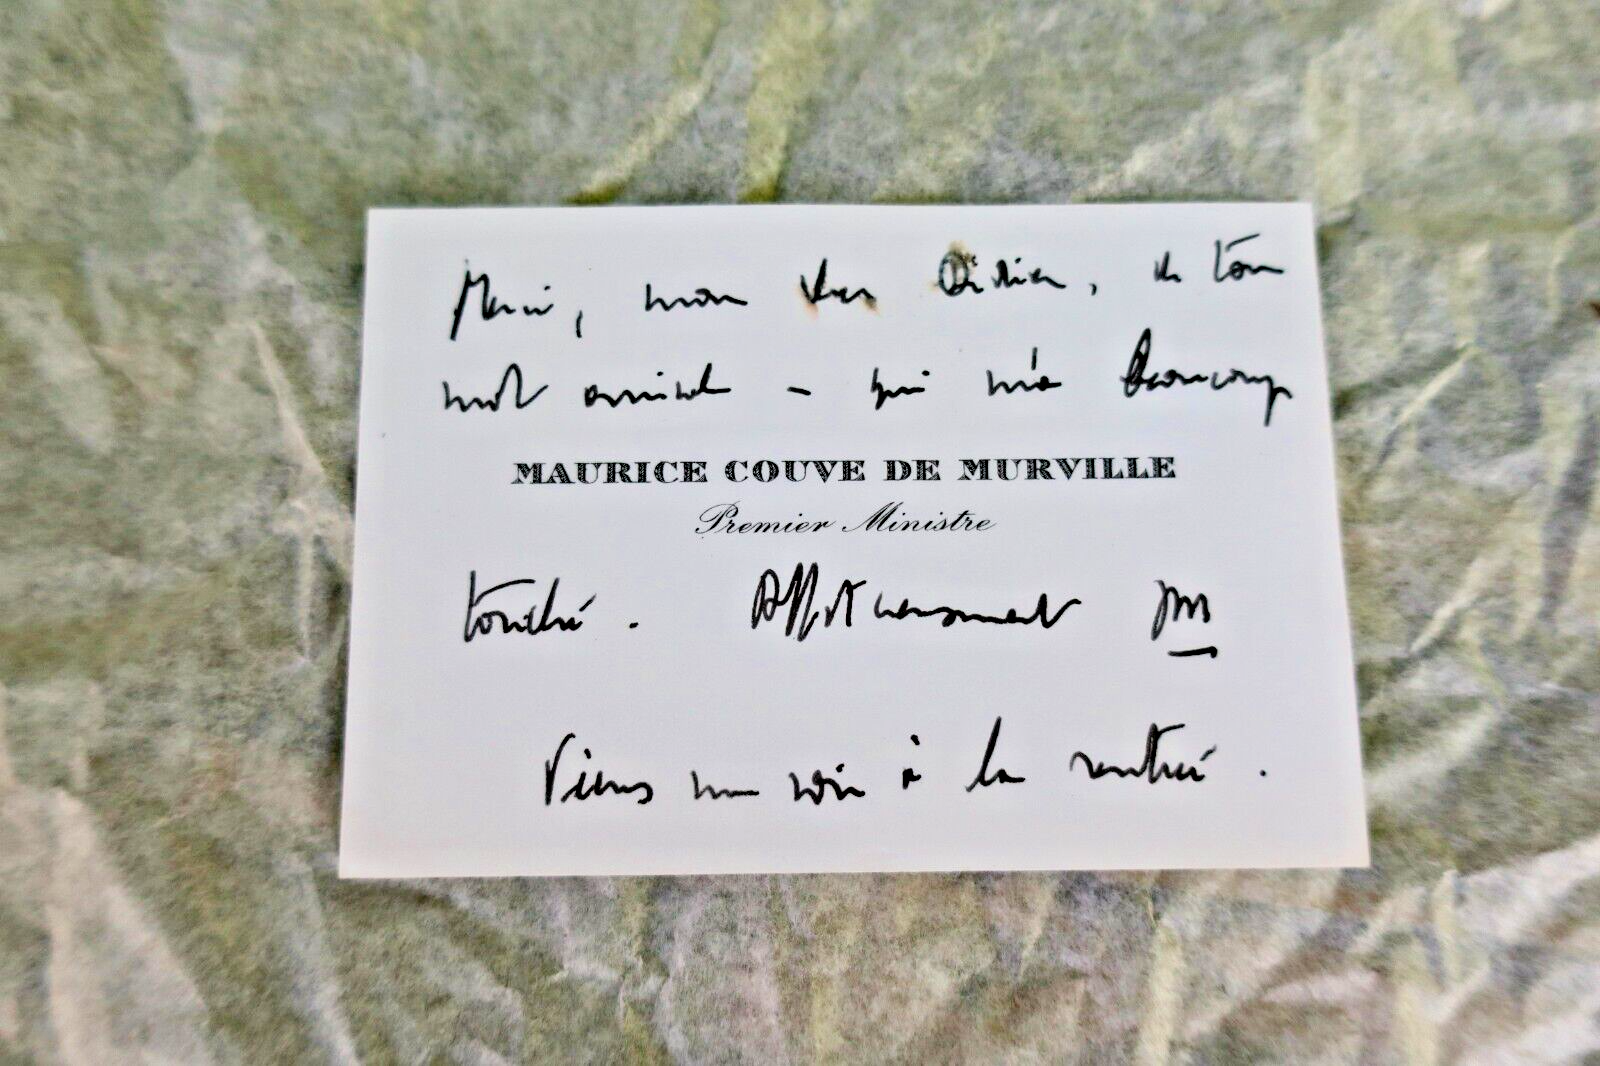 Merci, mon cher Didier, de ton
mot amical - qui m'a beaucoup
MAURICE COUVE DE MURVILLE
Premier Ministre
touché. Affectueusement
Viens me voir à la rentrée.